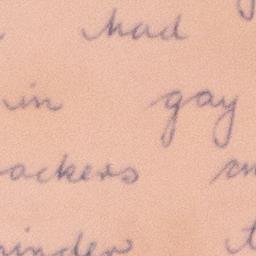 had
in gay
ackers
inder